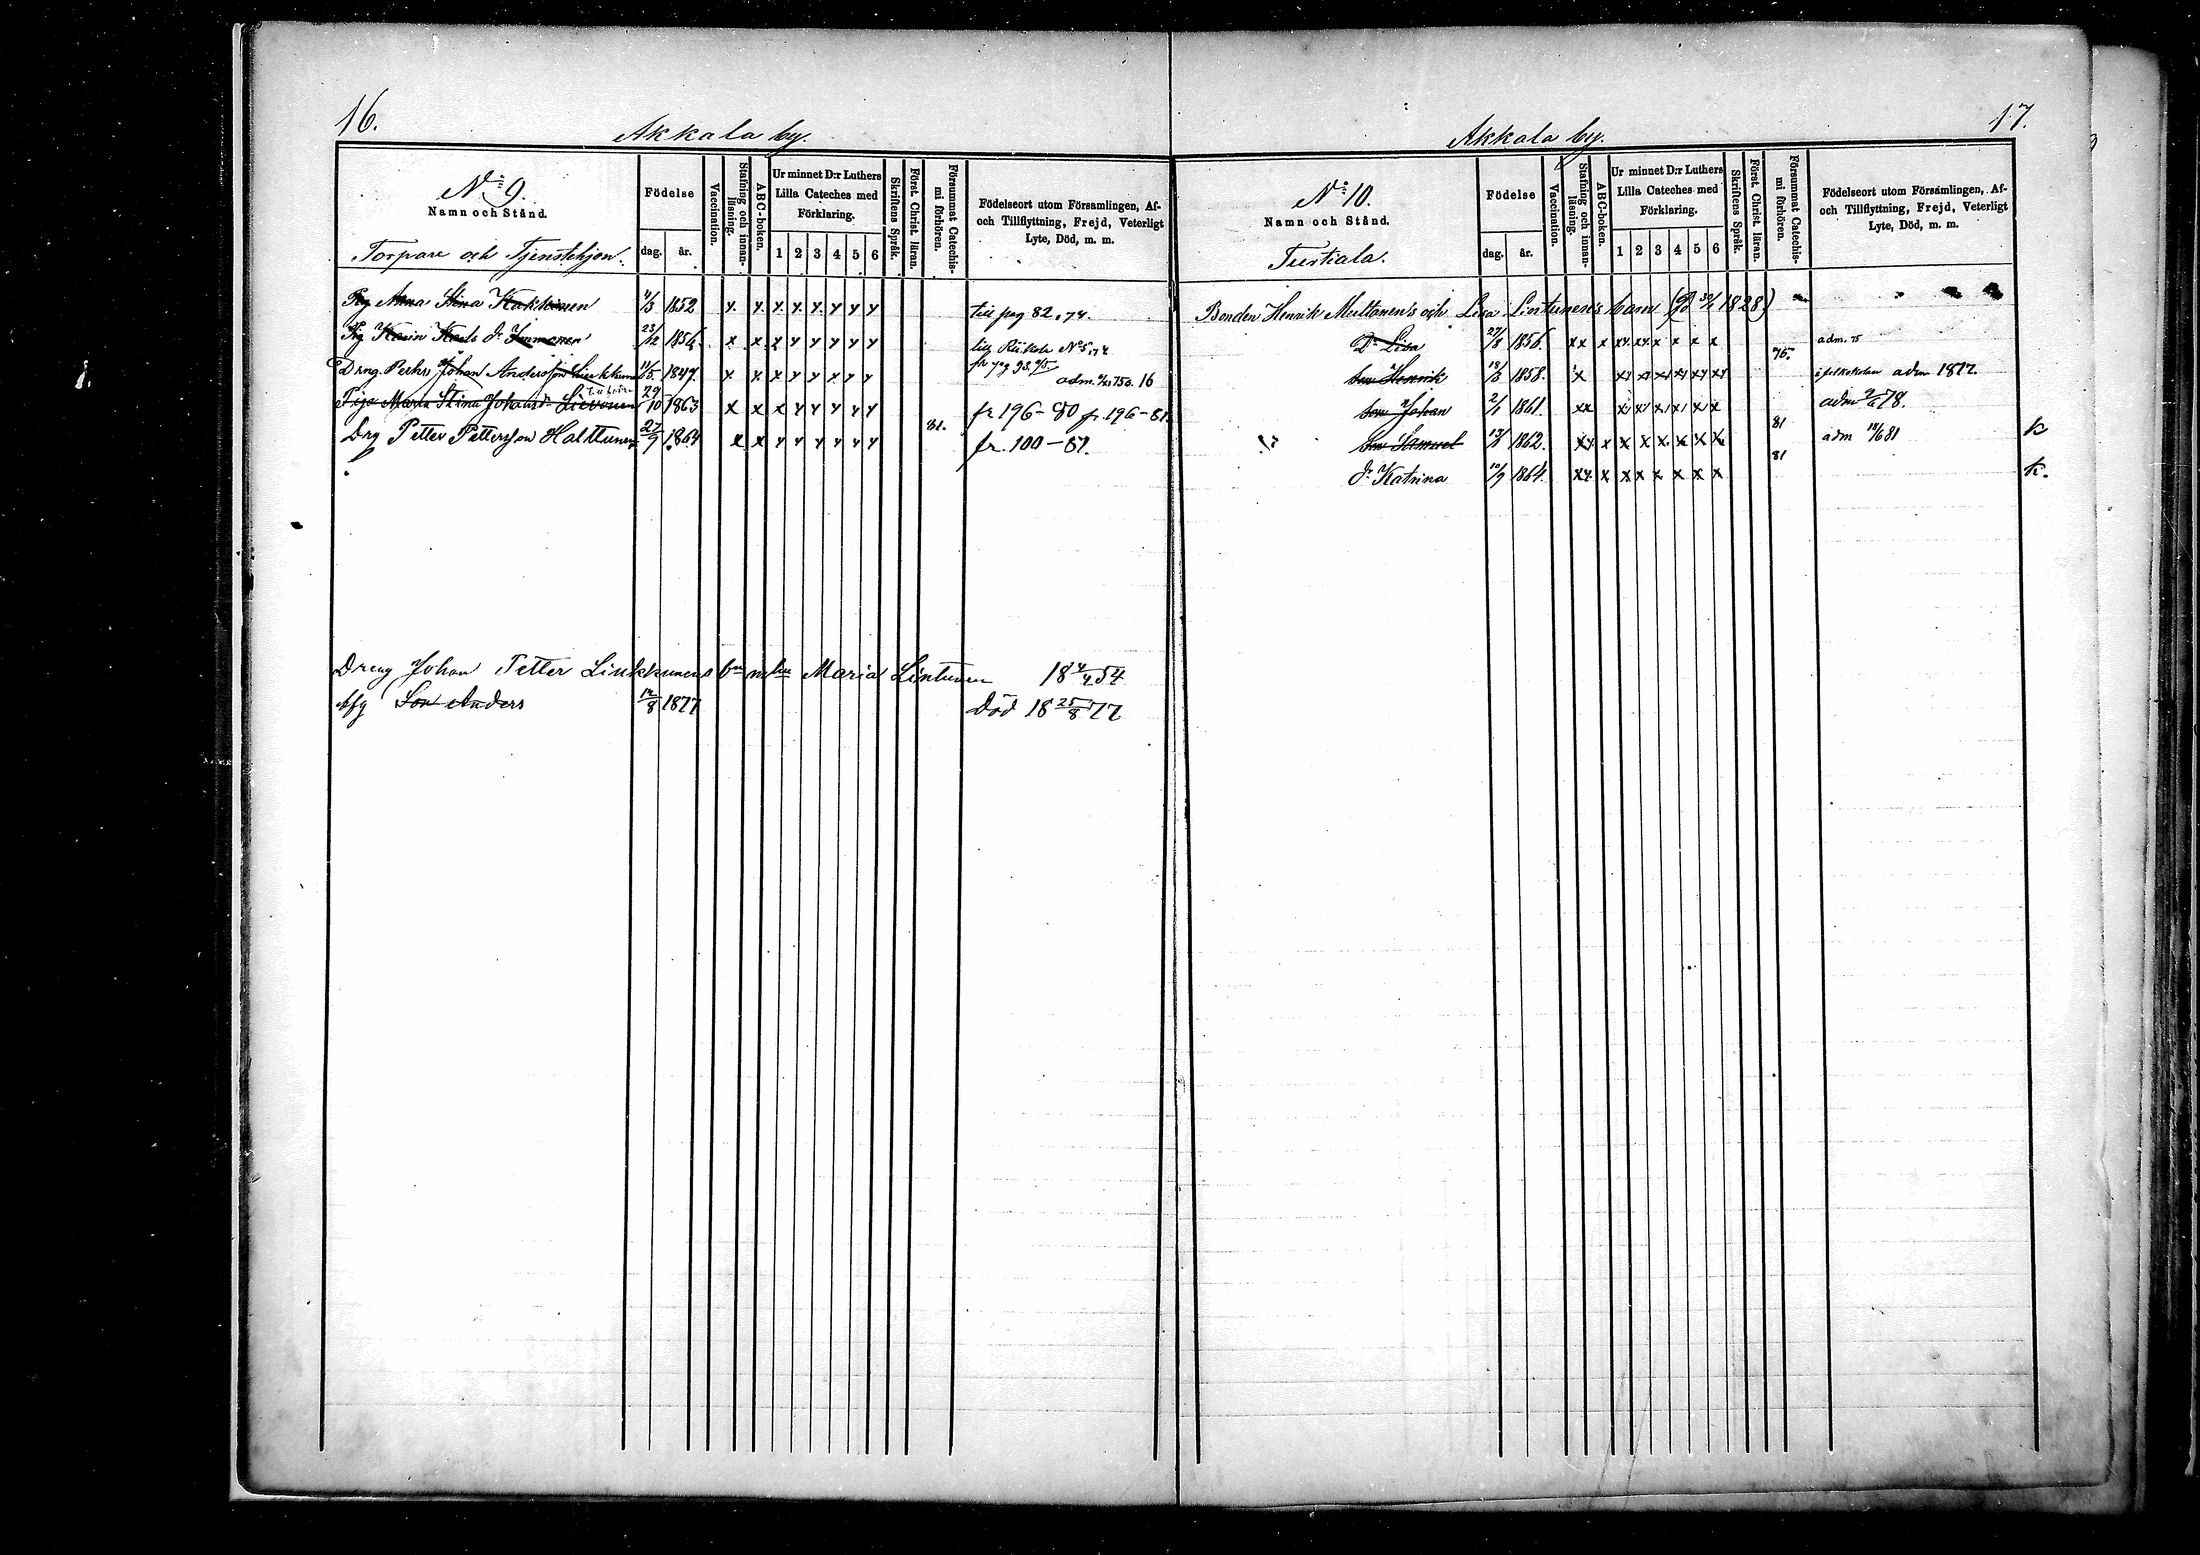 16.
Akkala by.
No 9.
Namn och Stånd.
Torpare och Tjenstehjon.
Födelse
dag. år.
Vaccination.
Stafning och innanläsning.
ABC-boken.
Ur minnet D:r Luthers Lilla Cateches med Förklaring.
1 2 3 4 5 6
Skriftens Språk.
Först. Christ. läran.
Försummat Catechismi förhören.
Födelseort utom Församlingen, Af- och Tillflyttning, Frejd, Veterligt Lyte, Död, m. m.
Pig Anna Stina Kakkonen 4/3 1852 till pag 82, 74.
Pig Karin Karls dr Immonen 23/12 1854 till Riikola No 5, 74
Drng. Johan Andersson Liukkunen 4/5 1847. fr pag 93. 75. adm. 16
Piga Maria Stina Johansdr Sirvonen 29/10 1863 fr 196-80 fr. 196-81.
Drg Petter Pettersson Halttunen 27/9 1864 81. fr. 100-81.
Dreng Johan Petter Liukkunens bn m hu Maria Lintunen 18 4/4 54
Afg Son Anders 12/8 1877 Död 18 25/8 77
17.
Akkala by.
No 10.
Namn och Stånd.
Tustiala.
Födelse
dag. år.
Vaccination.
Stafning och innanläsning.
ABC-boken.
Ur minnet D:r Luthers Lilla Cateches med Förklaring.
1 2 3 4 5 6
Skriftens Språk.
Först. Christ. läran.
Försummat Catechismi förhören.
Födelseort utom Församlingen, Af- och Tillflyttning, Frejd, Veterligt Lyte, Död, m. m.
Bonden Henrik Multanen's och Lisa Lintunen's barn 1828)
Dr Lisa 27/8 1856. adm. 75
Son Henrik 18/3 1858. 75 i folkskolan adm 1877.
Son Johan 2/1 1861. adm 78.
Son Samuel 13/1 1862. 81 adm 18/6 81 k
Dr Katrina 10/9 1864. 81 k.